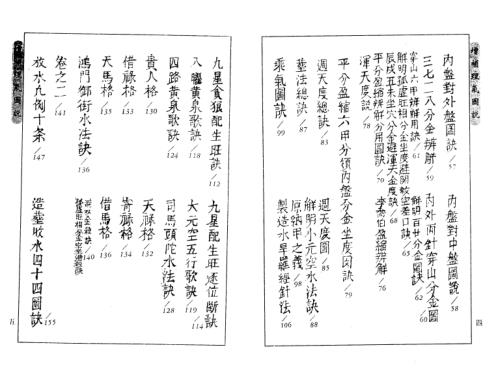 內盤對外盤圖訣/57
內盤對中盤圖說/58
三七二八分金辨解/59
內外兩針穿山分金圖/60
穿山六甲辨解用訣/61
解明百廿分金圖訣/62
解明孤虛旺相分金坐度避關煞空差口訣/65
辰戌丑未坐穴分金避渾天金度訣/68
李為伯盈縮辨解/76
平分盈縮辨解分用圖訣/70
渾天度說/78
平分盈縮六甲分須內盤分金坐度圖訣/79
週天度總訣/83
週天度圖/85
解明小元空水法訣/88
墓法總訣/87
原納甲之義/98
乘氣圖訣/99
製造水旱羅經針法/106
四
增補理氣圖說
九星貪狼配生旺訣/112
九星配生旺逐位斷訣/114
八曜黃泉歌訣/118
大元空五行歌訣/119
四路黃泉歌訣/124
司馬頭陀水法訣/128
貴人格/130
天祿格/132
借祿格/133
寄祿格/134
天馬格/135
借馬格/136
鴻門御街水法訣/136
卷之二/141
放水九例十条/147
造塋收水四十四圖訣/155
五